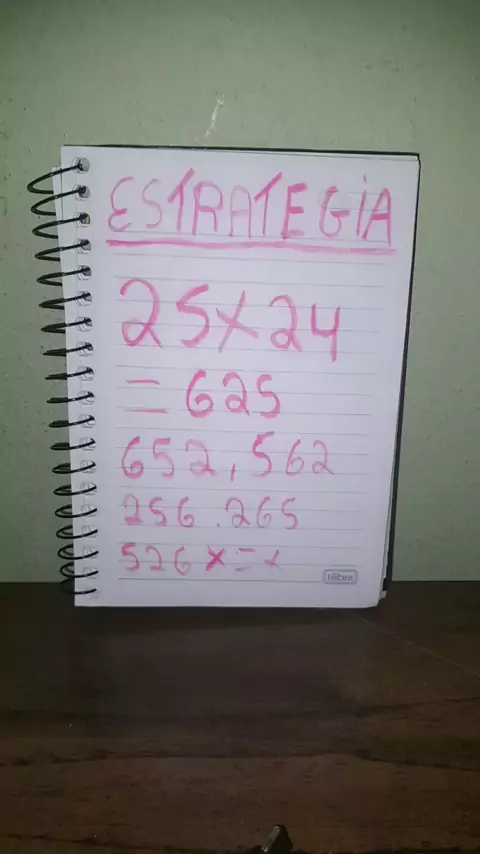 ESTRATEGIA
25X24
= 625
652, 562
256.265
526 x = x
tilibra